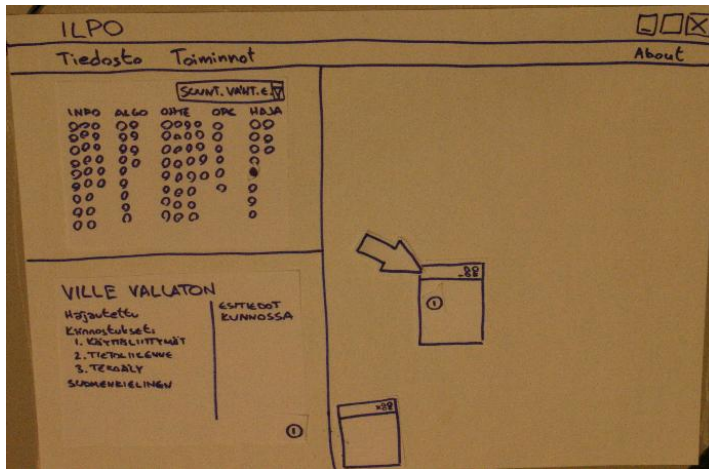 ILPO
Tiedosto Toiminnot About
SUUNT. VAIHT. E.
INFO ALGO OHTE OPE HAJA
VILLE VALLATON
Hajautettu
Kiinnostukset:
1. KÄYTTÖLIITTYMÄT
2. TIETOLIIKENNE
3. TEKOÄLY
SUOMENKIELINEN
ESITIEDOT
KUNNOSSA
1
1